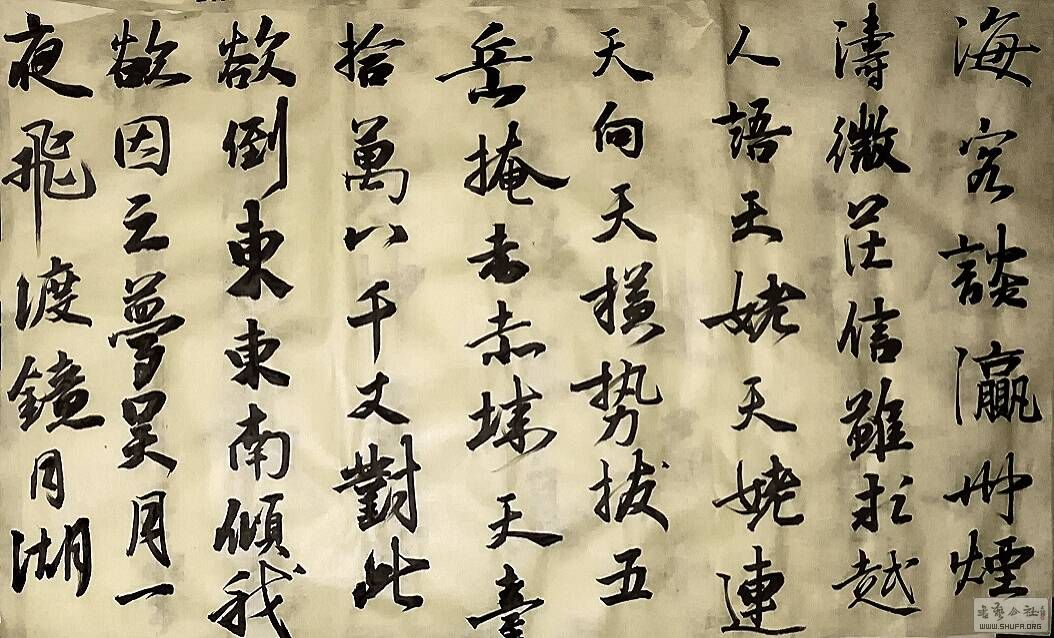 海客談瀛州煙
濤微茫信難求越
人語天姥天姥連
天向天橫势拔五
岳掩赤城天臺
拾萬八千丈對此
欲倒東東南傾我
欲因之夢吳月一
夜飛渡鏡月湖
书艺公社
WWW.SHUFA.ORG